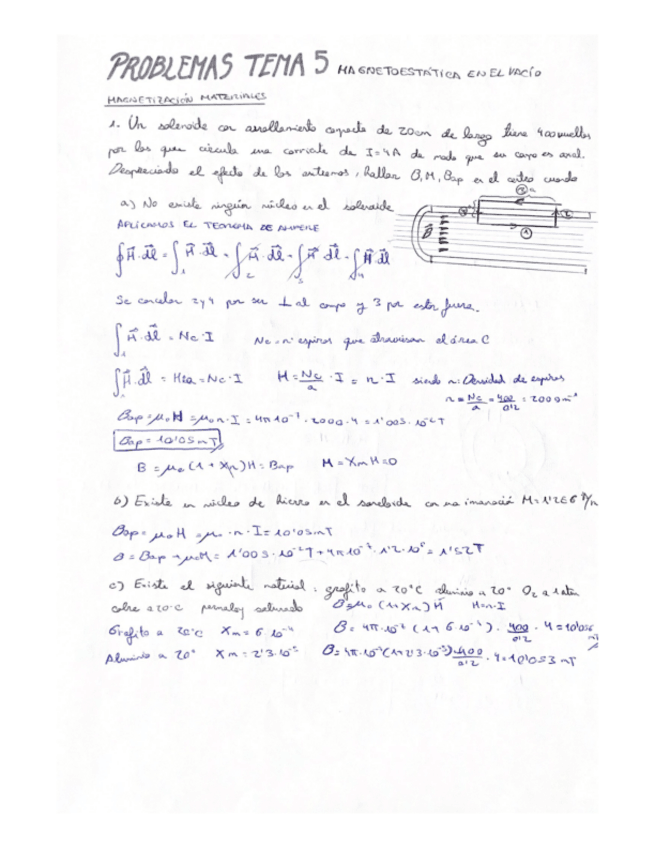 PROBLEMAS TEMA 5 MAGNETOESTÁTICA EN EL VACÍO
MAGNETIZACIÓN MATERIALES
1. Un solenoide con arrollamiento compacto de 20cm de largo tiene 400 vueltas
por las que circula una corriente de I=4A de modo que su campo es axial.
Despreciando el efecto de los extremos, hallar B, M, Bap en el centro cuando
a) No existe ningún núcleo en el solenoide
APLICAMOS EL TEOREMA DE AMPERE
B⃗
∮H⃗·dl⃗ = ∫₁H⃗·dl⃗ + ∫₂H⃗·dl⃗ + ∫₃H⃗·dl⃗ + ∫₄H⃗·dl⃗
Se cancelan 2 y 4 por ser ⊥ al campo y 3 por estar fuera.
∫₁H⃗·dl⃗ = Nc·I Nc = nº espiras que atraviesan el área C
∫₁H⃗·dl⃗ = Ha = Nc·I H = Nc/a · I = n·I siendo n: Densidad de espiras
n = Nc/a = 400/0'2 = 2000 m⁻¹
Bap = μ₀H = μ₀n·I = 4π10⁻⁷·2000·4 = 1'005·10⁻²T
Bap = 10'05mT
B = μ₀(1+Xm)H = Bap M = XmH = 0
b) Existe un núcleo de hierro en el solenoide con una imanación M=1'2E6 A/m
Bap = μ₀H = μ₀·n·I = 10'05mT
B = Bap + μ₀M = 1'005·10⁻²T + 4π10⁻⁷·1'2·10⁶ = 1'52T
c) Existe el siguiente material: grafito a 20ºC aluminio a 20º O₂ a 1atm
cobre a 20ºC permaloy saturado B = μ₀(1+Xm)H H=n·I
Grafito a 20ºC Xm = 6·10⁻⁴ B = 4π·10⁻⁷(1+6·10⁻⁴)·400/0'2·4 = 10'056 mT
Aluminio a 20º Xm = 2'3·10⁻⁵ B = 4π·10⁻⁷(1+2'3·10⁻⁵)·400/0'2·4 = 10'053 mT